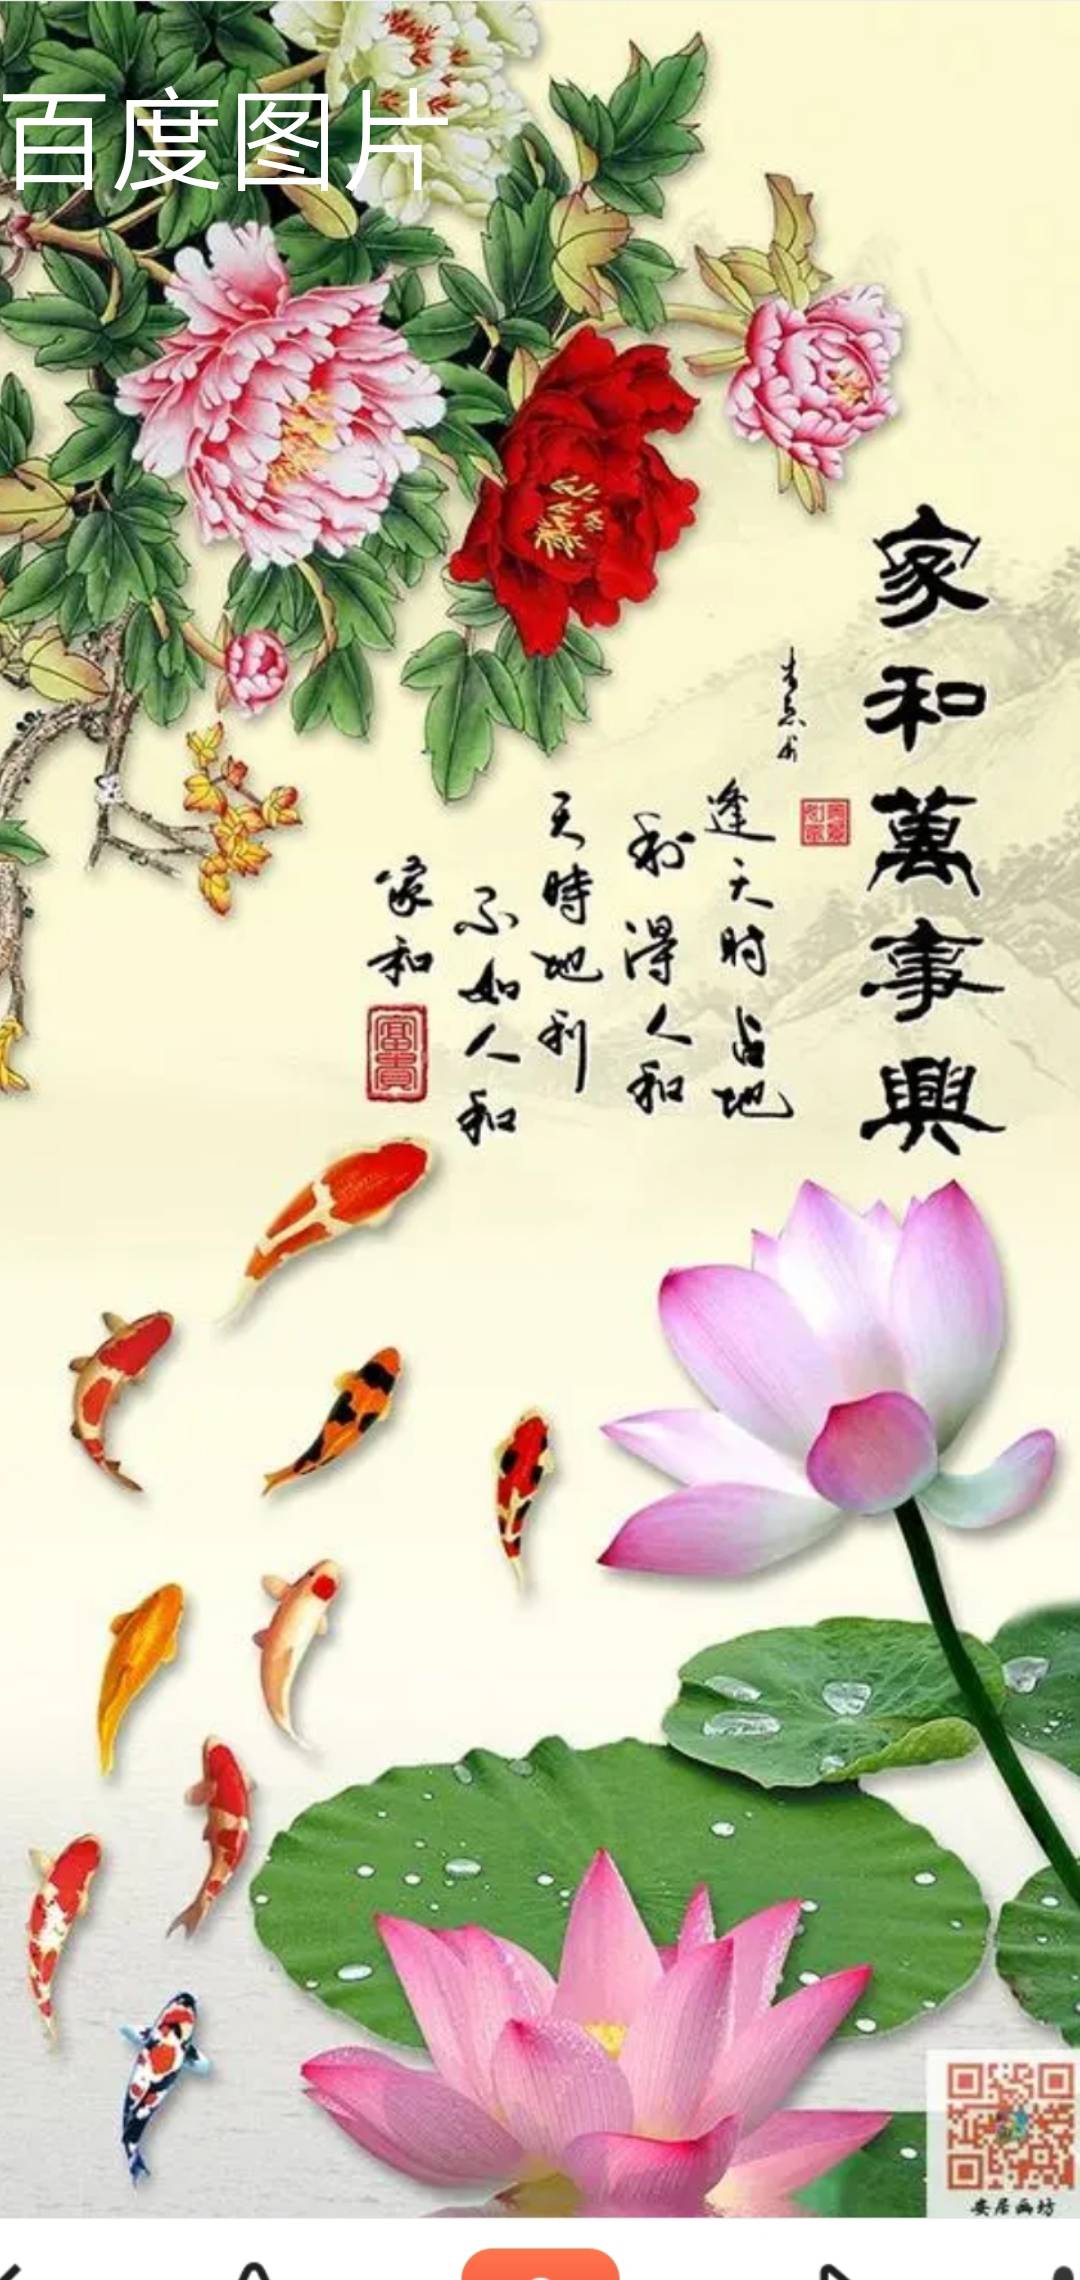 百度图片
家和萬事興
逢天时占地
利得人和
天時地利
不如人和
家和
富貴
安居画坊